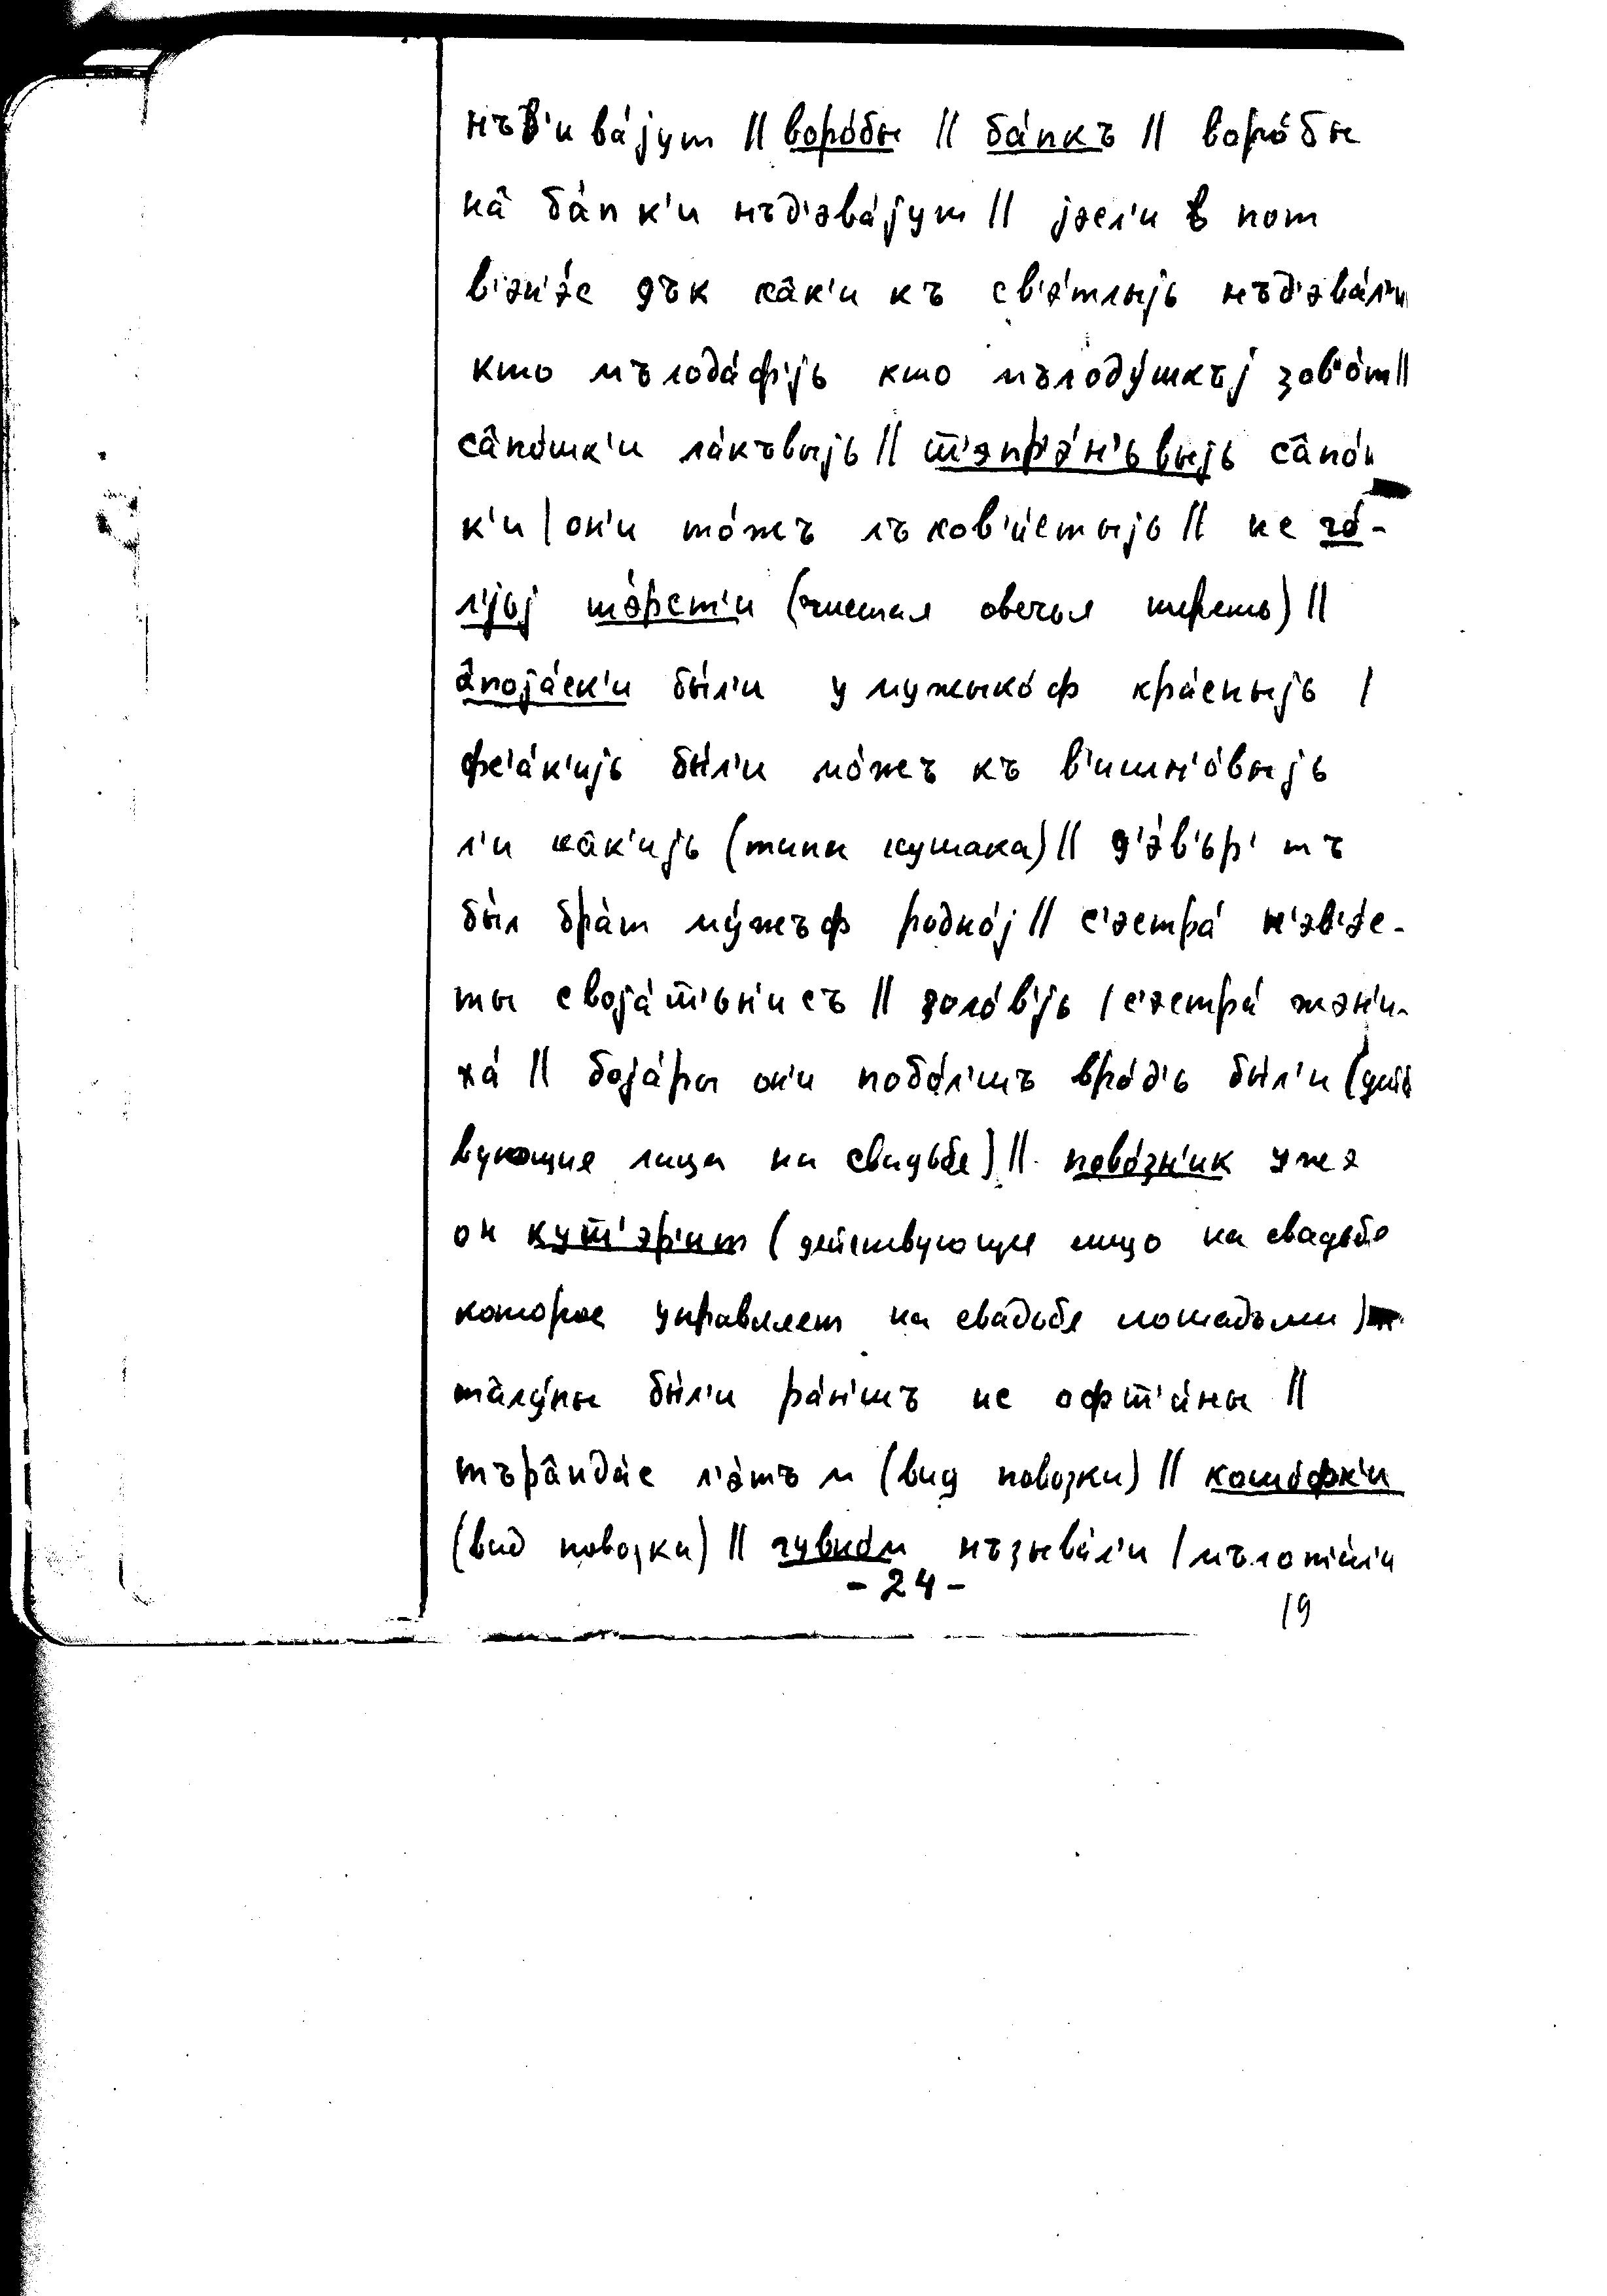 нъв'ива́jут || воро́бы || ба́пкъ || воро́бы
нâ ба́пк'и нъд'эва́jут || jэсл'и в пот
в'эн'э́с дък кâк'и къ св'э́тлыjь нъд'эва́л'и
кто мълода́ф'jь кто мълоду́шкъj зов'о́т ||
сâпо́шк'и ла́къвыjь || т̅'эпр'э́н'ьвыjь сâпо́ш
к'и | он'и то́жъ лъков'и́стыjь || ис го́-
л'jьj шэ́рст'и (чистая овечья шерсть) ||
âпоjа́ск'и бы́л'и у мужыко́ф кра́сныjь |
фс'а́к'иjь бы́л'и мо́жъ къ в'ишн'о́выjь
л'и кâк'иjь (типа кушака) || д'э́в'ьр' тъ
бы́л бра́т му́жъф родно́j || с'эстра́ н'эв'э́с-
ты своjа́т̅'ьн'исъ || золо́в'jь | с'эстра́ жэн'и-
ха́ || боjа́ры он'и побо́л'шъ вро́д'ь бы́л'и (дейст
вующие лица на свадьбе) || пово́зн'ик ужэ
он кут̅'эр'ит (действующее лицо на свадьбе
которое управляет на свадьбе лошадьми)
тâлу́пы бы́л'и ра́н'шъ ис офт̅'и́ны ||
търâнда́с л'э́тъм (вид повозки) || кошо́фк'и
(вид повозки) || гувно́м нъзыва́л'и | мълот'и́л'и
-24-
19